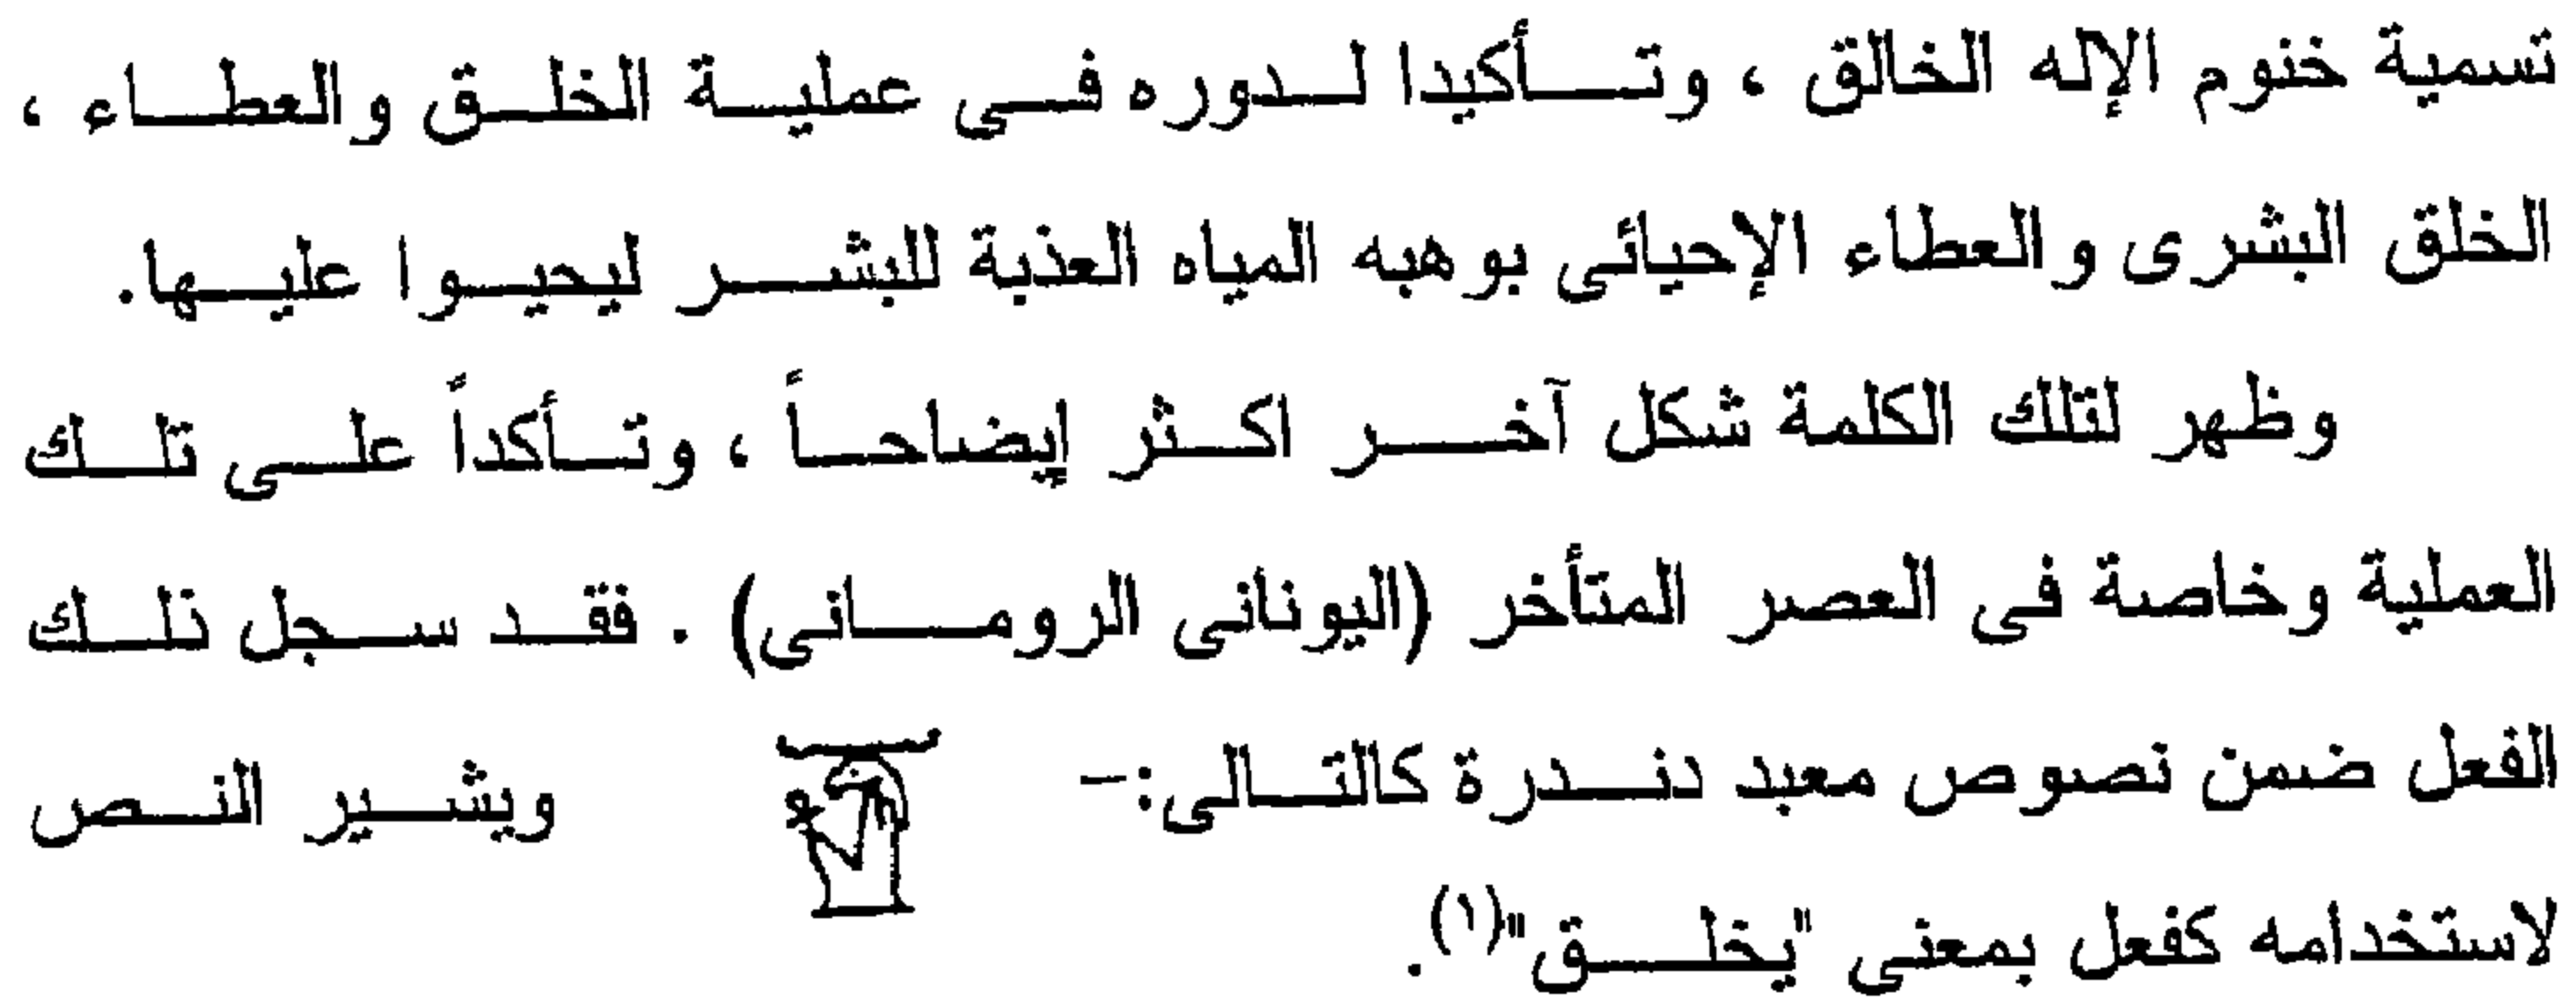 تسمية خنوم الإله الخالق ، وتأكيدا لدوره فى عملية الخلق والعطاء ،
الخلق البشرى والعطاء الإحيائى بوهبه المياه العذبة للبشر ليحيوا عليها.
وظهر لتلك الكلمة شكل آخر اكثر إيضاحاً ، وتأكداً على تلك
العملية وخاصة فى العصر المتأخر (اليونانى الرومانى) . فقد سجل تلك
الفعل ضمن نصوص معبد دندرة كالتالى:- ويشير النص
لاستخدامه كفعل بمعنى "يخلق"(١).